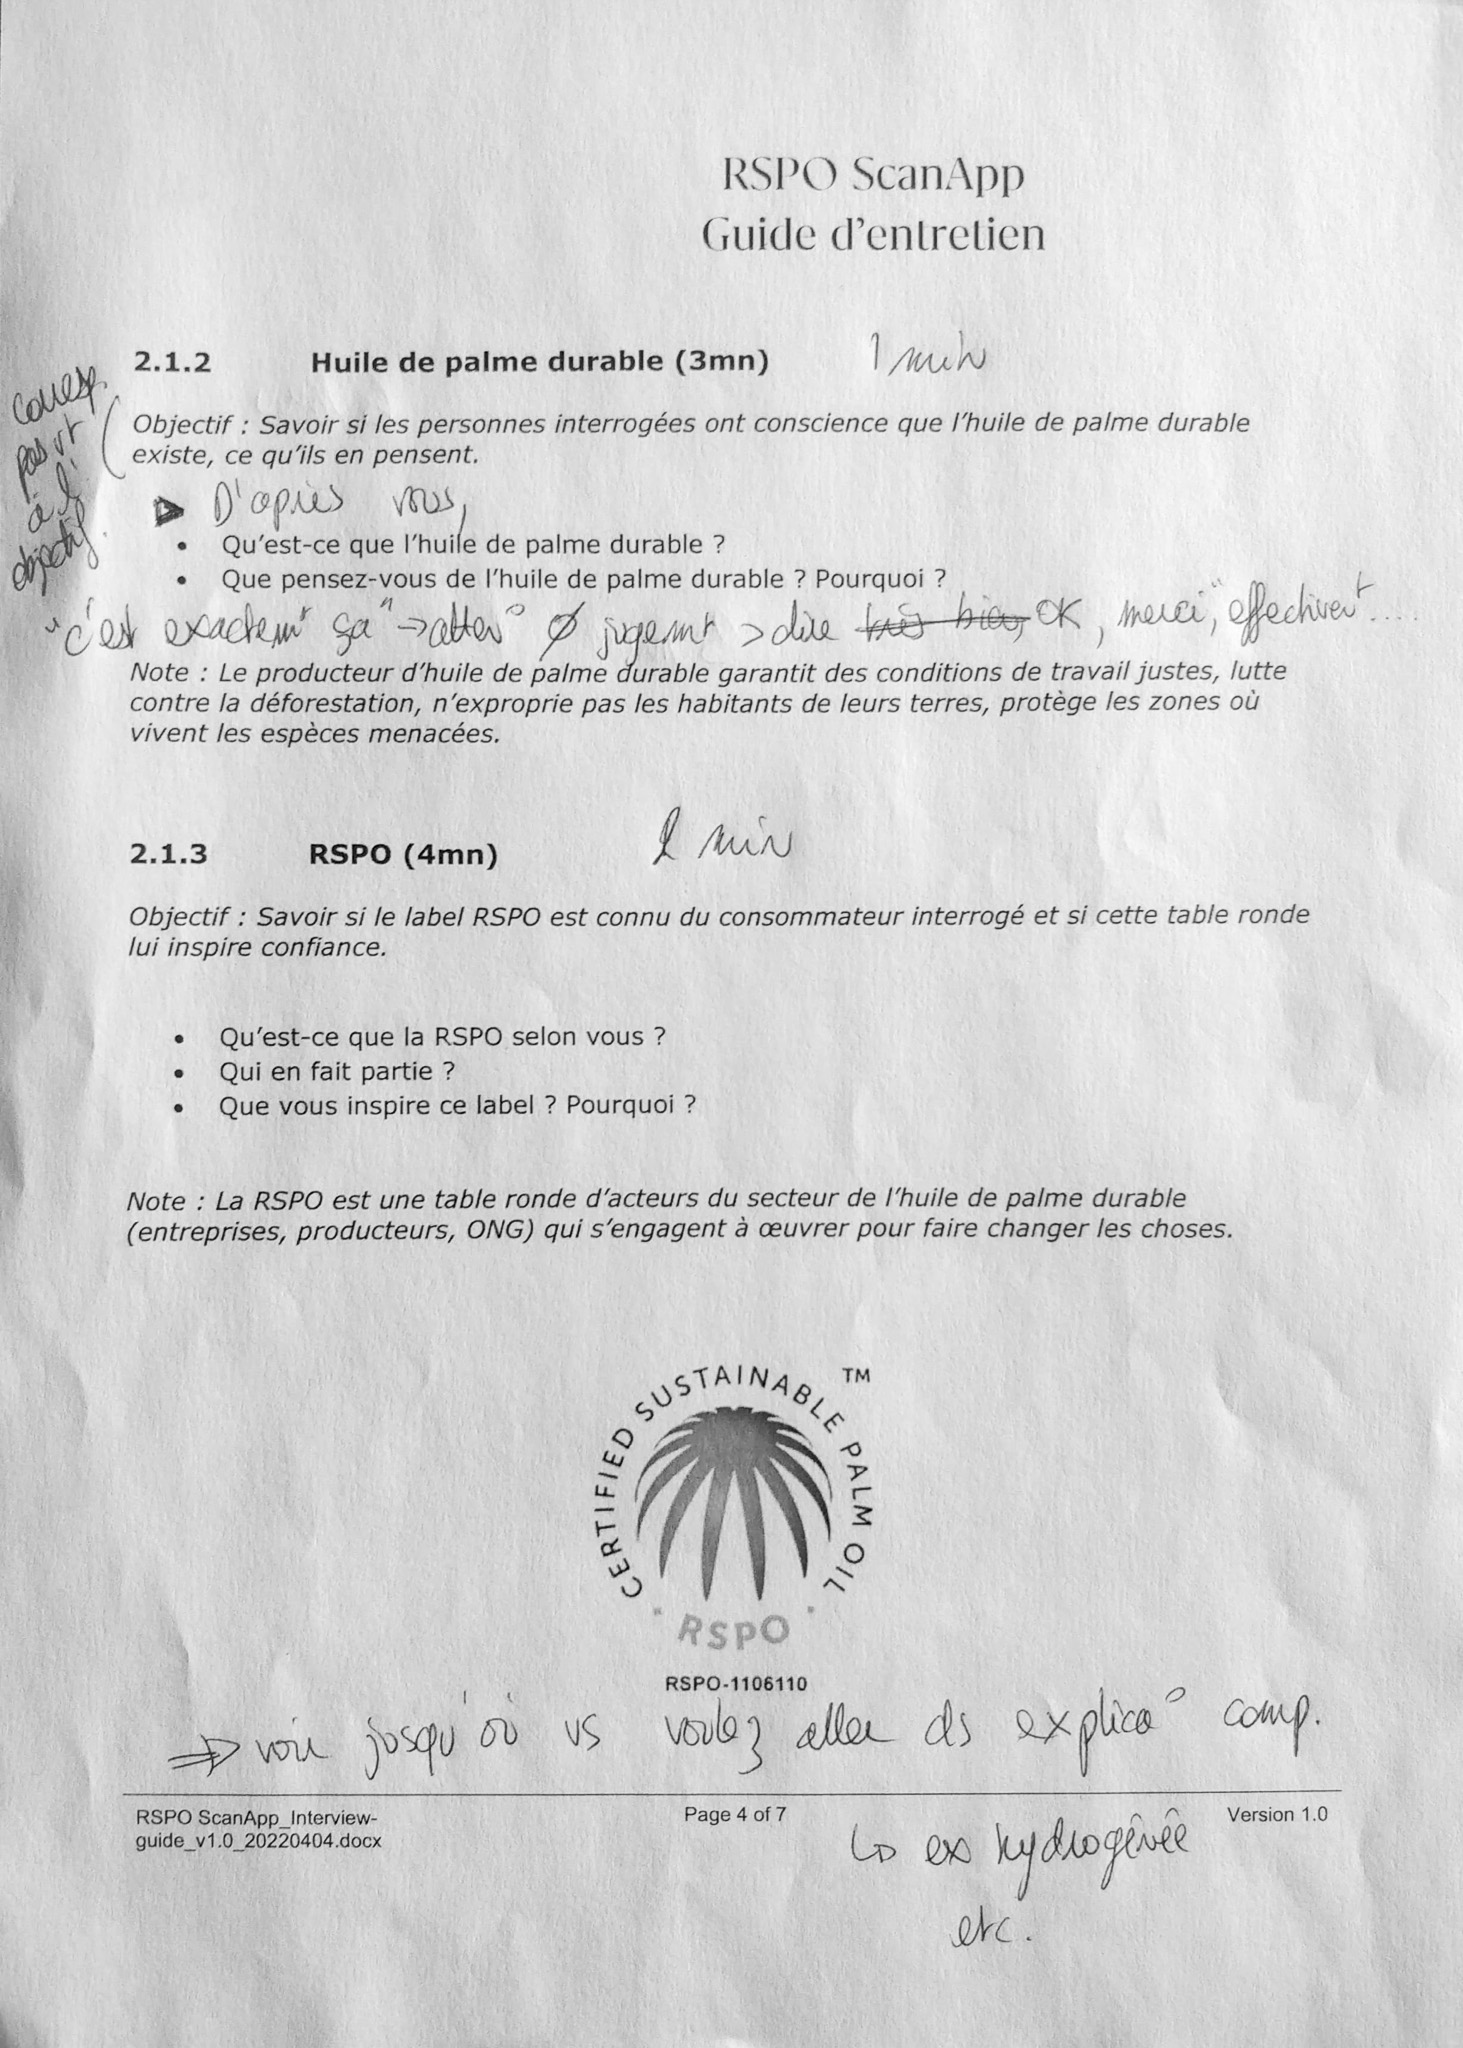 RSPO ScanApp
Guide d'entretien
2.1.2 Huile de palme durable (3mn) 1 min
corresp.
pas vt
à l'
objectif.
Objectif : Savoir si les personnes interrogées ont conscience que l'huile de palme durable
existe, ce qu'ils en pensent.
D'après vous,
• Qu'est-ce que l'huile de palme durable ?
• Que pensez-vous de l'huile de palme durable ? Pourquoi ?
"c'est exactemt ça" → attent° ∅ jugemt > dire très bien, OK, merci", effectivemt ....
Note : Le producteur d'huile de palme durable garantit des conditions de travail justes, lutte
contre la déforestation, n'exproprie pas les habitants de leurs terres, protège les zones où
vivent les espèces menacées.
2.1.3 RSPO (4mn) min
Objectif : Savoir si le label RSPO est connu du consommateur interrogé et si cette table ronde
lui inspire confiance.
• Qu'est-ce que la RSPO selon vous ?
• Qui en fait partie ?
• Que vous inspire ce label ? Pourquoi ?
Note : La RSPO est une table ronde d'acteurs du secteur de l'huile de palme durable
(entreprises, producteurs, ONG) qui s'engagent à œuvrer pour faire changer les choses.
CERTIFIED SUSTAINABLE PALM OIL TM
RSPO
RSPO-1106110
⇒ voir jusqu'où vs voulez aller ds explica° comp.
RSPO ScanApp_Interview-
guide_v1.0_20220404.docx
Page 4 of 7
Version 1.0
↳ ex hydrogénée
etc.